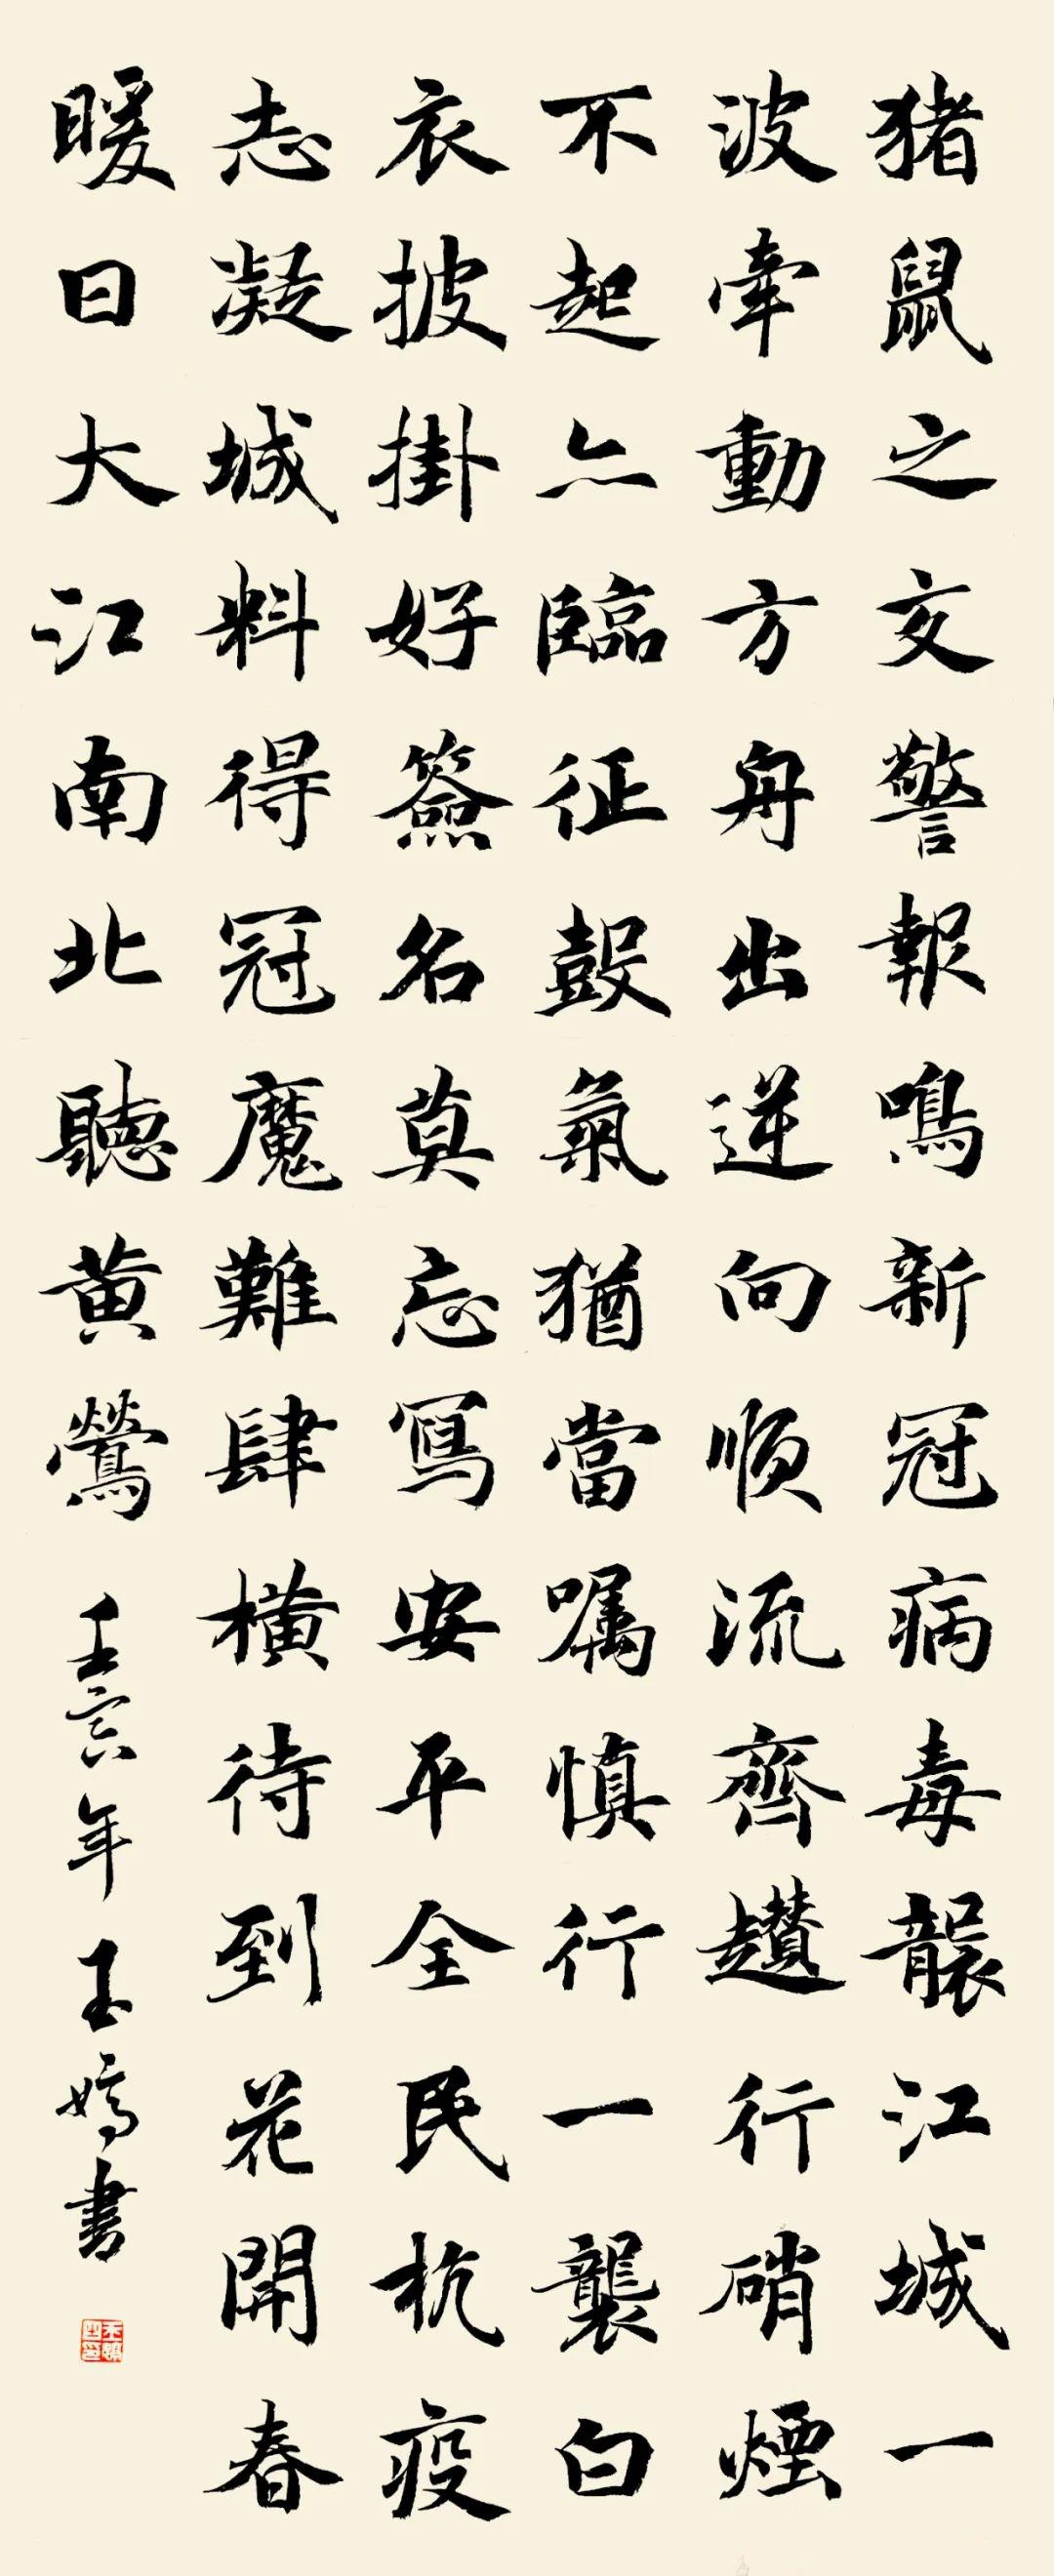 猪鼠之交警報鳴新冠病毒襲江城一
波牽動方舟出逆向順流齊趲行硝煙
不起亦臨征鼓氣猶當嘱慎行一襲白
衣披掛好簽名莫忘寫安平全民抗疫
志凝城料得冠魔難肆横待到花開春
暖日大江南北聽黄鶯
壬寅年王嫣書